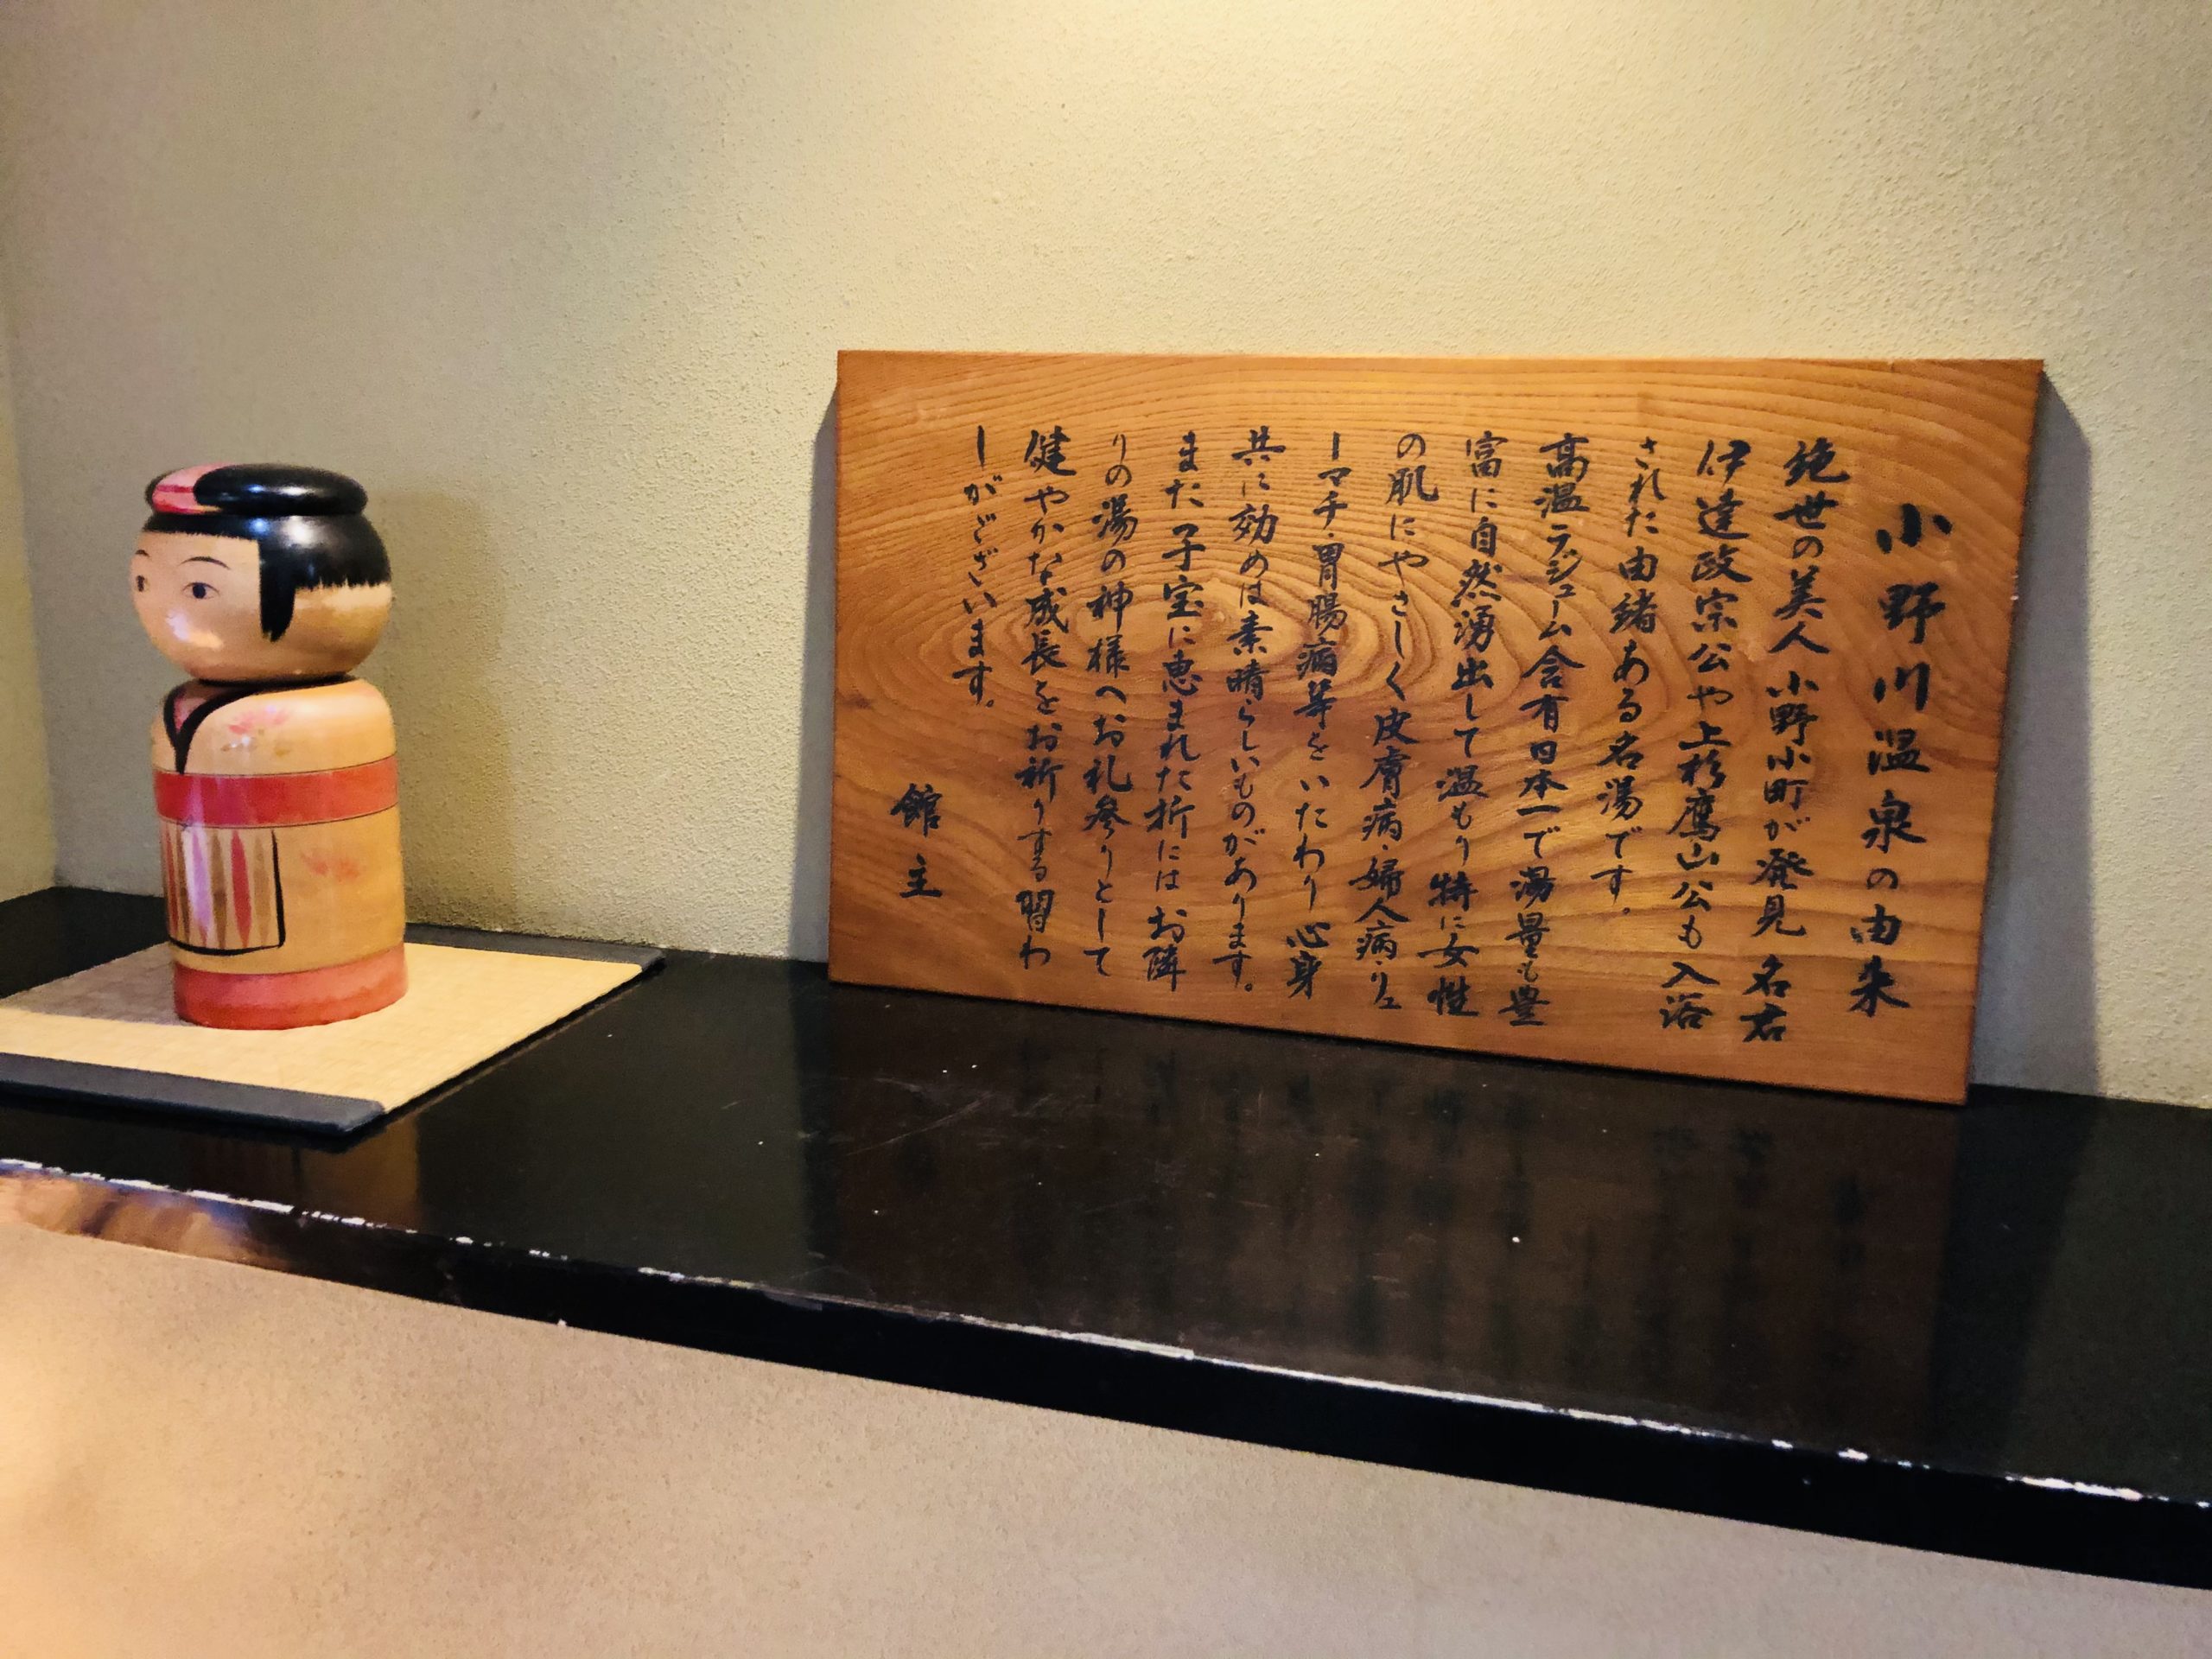 小野川温泉の由来
絶世の美人小野小町が発見 名君
伊達政宗公や上杉鷹山公も入浴
された由緒ある名湯です。
高温ラジューム含有日本一で湯量も豊
富に自然湧出して温もり特に女性
の肌にやさしく皮膚病・婦人病・リュ
ーマチ・胃腸病等をいたわり心身
共に効めは素晴らしいものがあります。
また子宝に恵まれた折にはお隣
りの湯の神様へお礼参りとして
健やかな成長をお祈りする習わ
しがございます。
館主